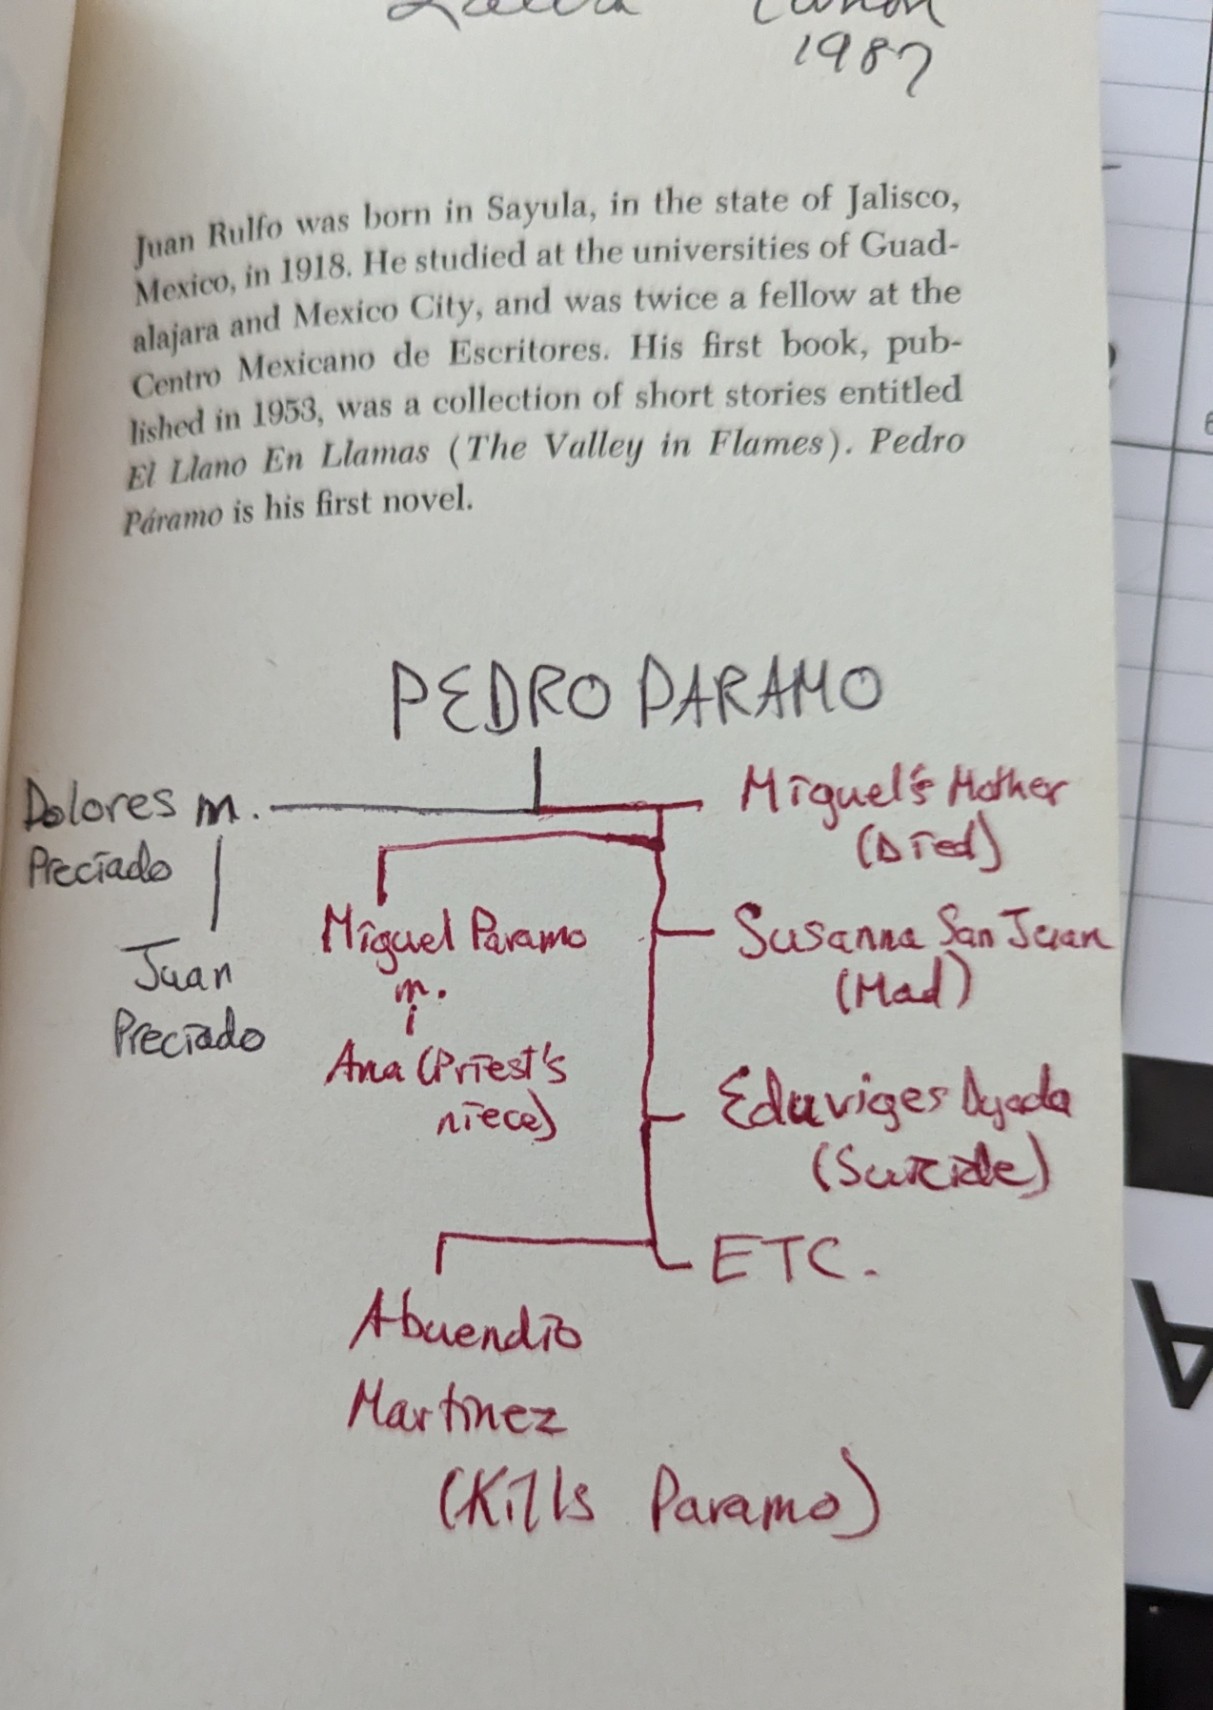 1987
Juan Rulfo was born in Sayula, in the state of Jalisco,
Mexico, in 1918. He studied at the universities of Guad-
alajara and Mexico City, and was twice a fellow at the
Centro Mexicano de Escritores. His first book, pub-
lished in 1953, was a collection of short stories entitled
El Llano En Llamas (The Valley in Flames). Pedro
Páramo is his first novel.
PEDRO PARAMO
Dolores m.
Preciado
Juan
Preciado
Miguel's Mother
(Died)
Miguel Paramo
m.
Ana (Priest's
niece)
Susanna San Juan
(Mad)
Eduviges Dyada
(Suicide)
ETC.
Abuendio
Martinez
(Kills Paramo)
A